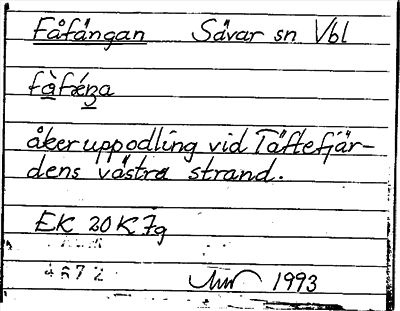 Fåfángan Sävar sn Vbl
fàfǽŋa
åkeruppodling vid Täftefjär-
dens västra strand.
EK 20K7g
1993